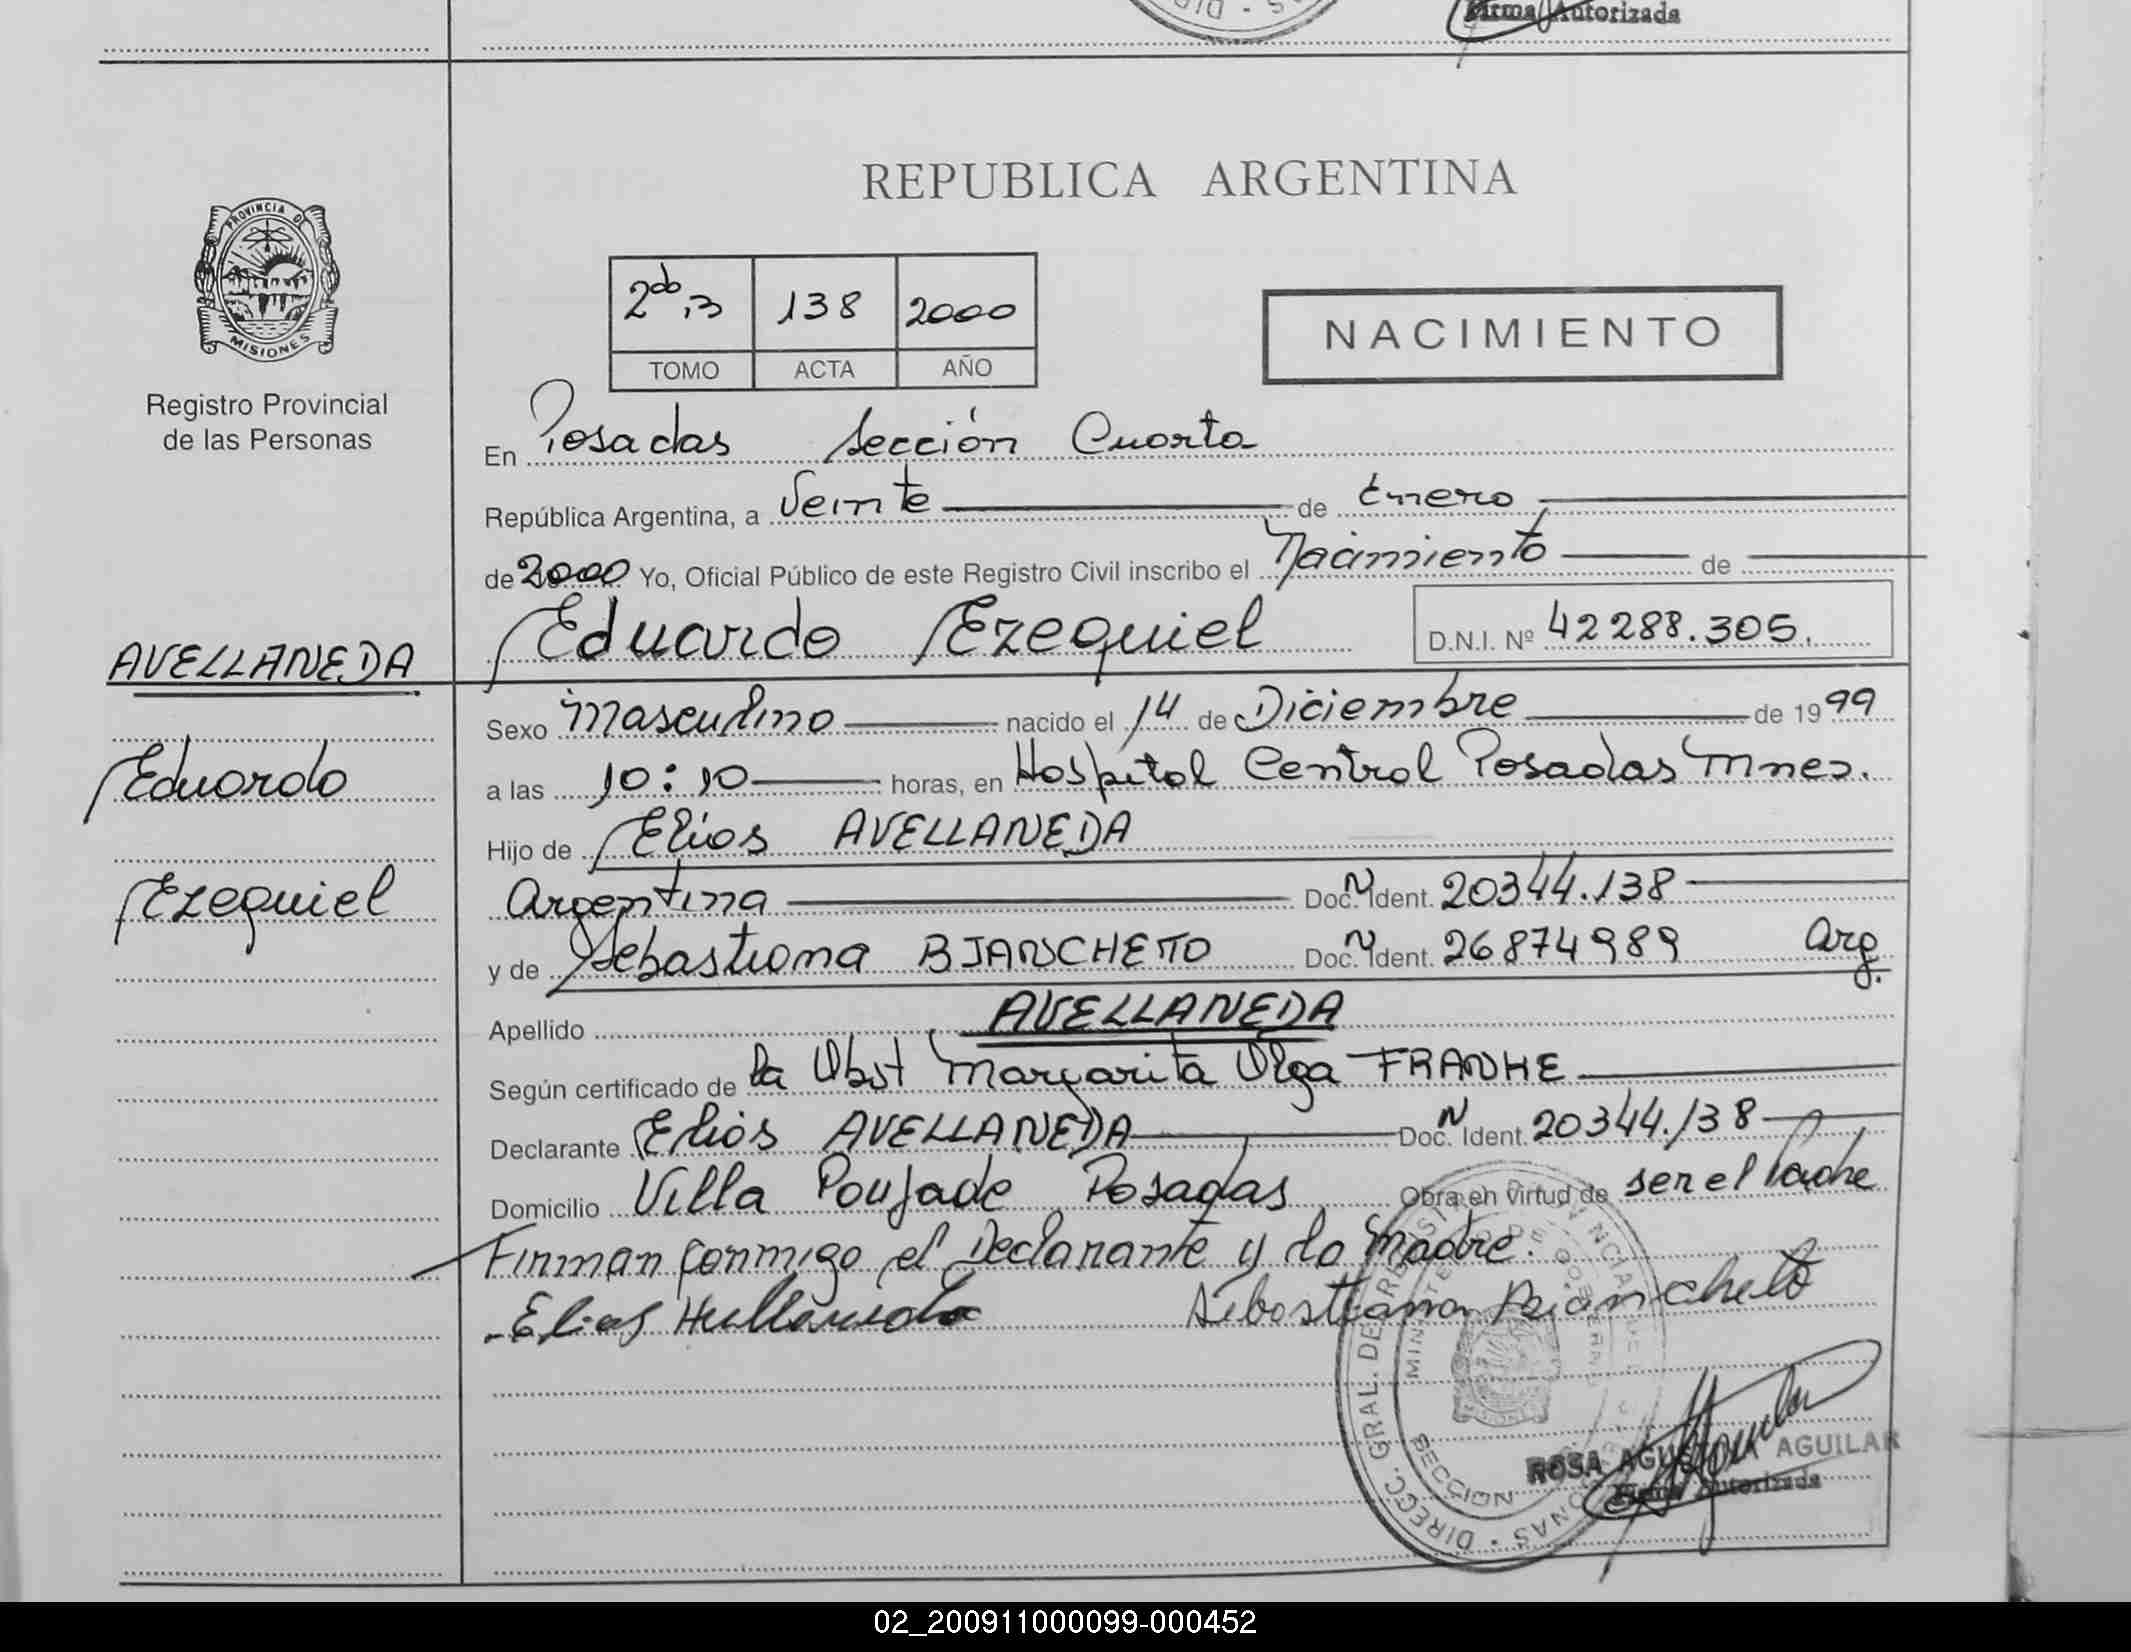 Firma Autorizada
REPUBLICA ARGENTINA
PROVINCIA DE
MISIONES
Registro Provincial
de las Personas
2do B 138 2000
TOMO ACTA AÑO
NACIMIENTO
En Posadas Sección Cuarta
República Argentina, a Veinte de Enero
de 2000 Yo, Oficial Público de este Registro Civil inscribo el Nacimiento de
Eduardo Ezequiel D.N.I. Nº 42288.305.
AVELLANEDA
Eduardo
Ezequiel
Sexo Masculino nacido el 14 de Diciembre de 1999
a las 10:10 horas, en Hospital Central Posadas Mnes.
Hijo de Elios AVELLANEDA
Argentina Doc. N Ident. 20344.138
y de Sebastiana BIANCHETTO Doc. N Ident. 26874989 Arg.
Apellido AVELLANEDA
Según certificado de la Obst Margarita Olga FRANKE
Declarante Elios AVELLANEDA Doc. N Ident. 20344.138
Domicilio Villa Poujade Posadas Obra en virtud de ser el Padre
Firman conmigo el Declarante y la Madre.
Elias Sebastiana Bianchetto
DIRECC. GRAL. DE
SECCION
ROSA AGUSTINA AGUILAR
Firma Autorizada
02_200911000099-000452